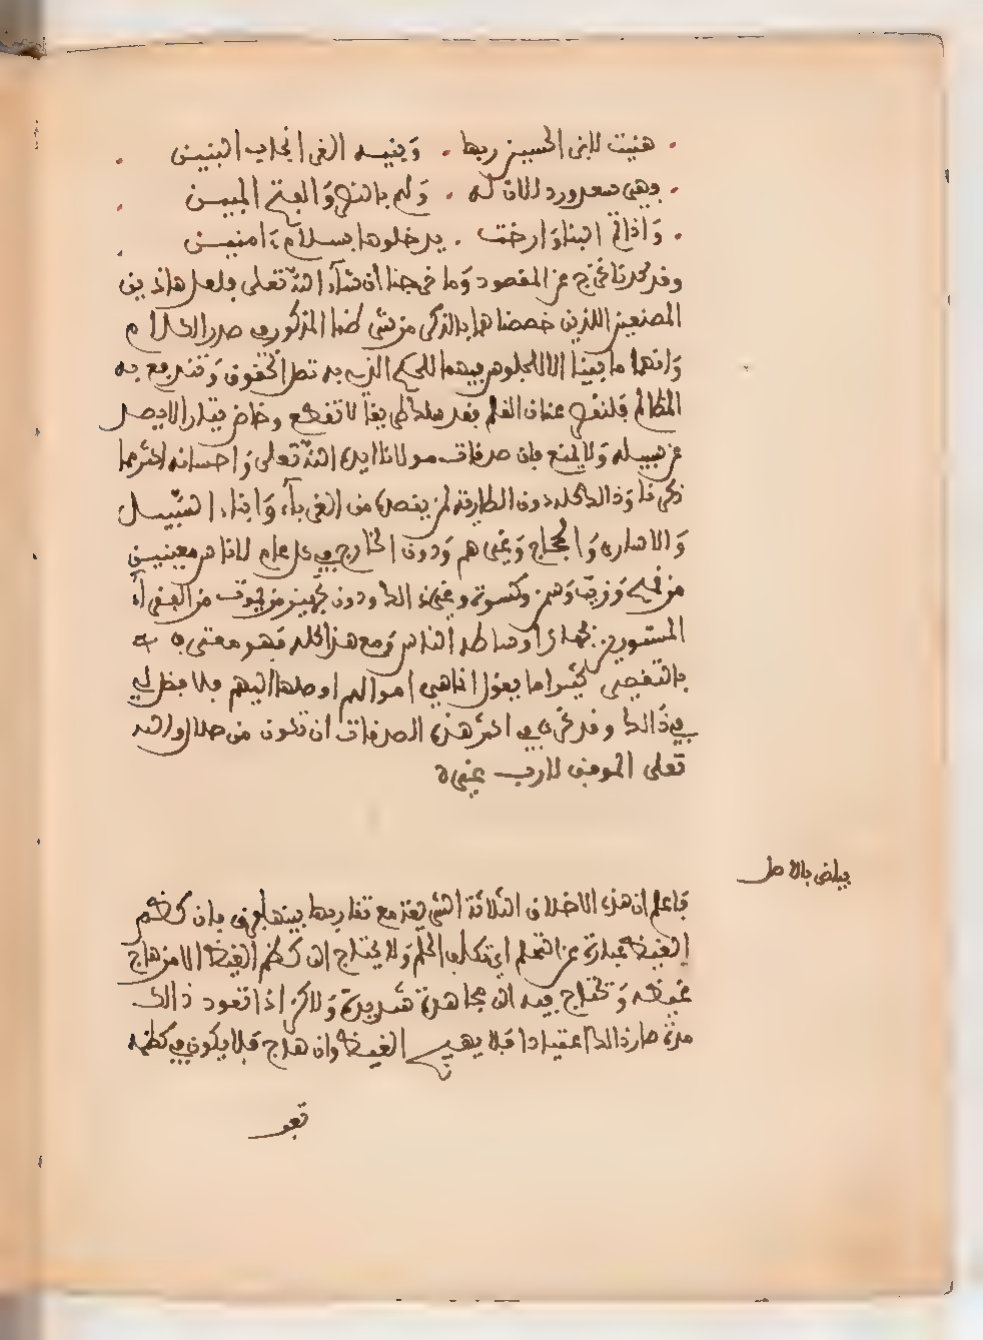 هنيت لابن الحسين ربها . وبنيه الغر انجاب البنين
وهي سعد ورد للاق له . ولم بالنصر والفتح المبين
واذا تم البنا وارخت . يدخلوها بسلام ءامنين
وقد كدنا نخرج عن المقصود وما خرجنا ان شاء الله تعلى فلعل هاذين
المصنعين اللذين خصصناهما بالذكر من
المذكور في صدر الكلام
وانهما ما بنيا الا للجلوس فيهما للحكم الذي به تصل الحقوق وتندفع به
المظالم فلنثن عنان القلم فقد سلك طريقا لا تقطع وخاض بتيار لا يصد
عن سبيله ولا يمنع فان صدقات مولانا ايده الله تعلى واحسانه اكثر مما
ذكرنا وذالك كله دون الطارفة لمن يقصده من الغرباء وابناء السبيل
والاسارى والحجاج وغيرهم ودون الخارج في كل عام لاناس معينين
من قمح وزيت وسمن وكسوة وغير ذالك ودون تجهيز من يموت من الفقراء
المستورين
الناس ومع هذا كله فهو معترف
بالتقصير كثيرا ما يقول انما هي اموالهم اوصلها اليهم فلا فضل لي
في ذالك وقد تحرى في اكثر هذه الصدقات ان تكون من حلال والله
تعلى الموفق لا رب غيره
بياض بالاصل
فاعلم ان هذه الاخلاق الثلاثة التي
مع تقاربها بينها فرق فان كظم
الغيظ عبارة عن التحلم اي تكلف الحلم ولا يحتاج الى كظم الغيظ الا من هاج
غيظه ويحتاج فيه الى مجاهدة شديدة ولاكن اذا تعود ذالك
مدة صار ذالك اعتيادا فلا يهيج الغيظ وان هاج فلا يكون في كظمه
تعب